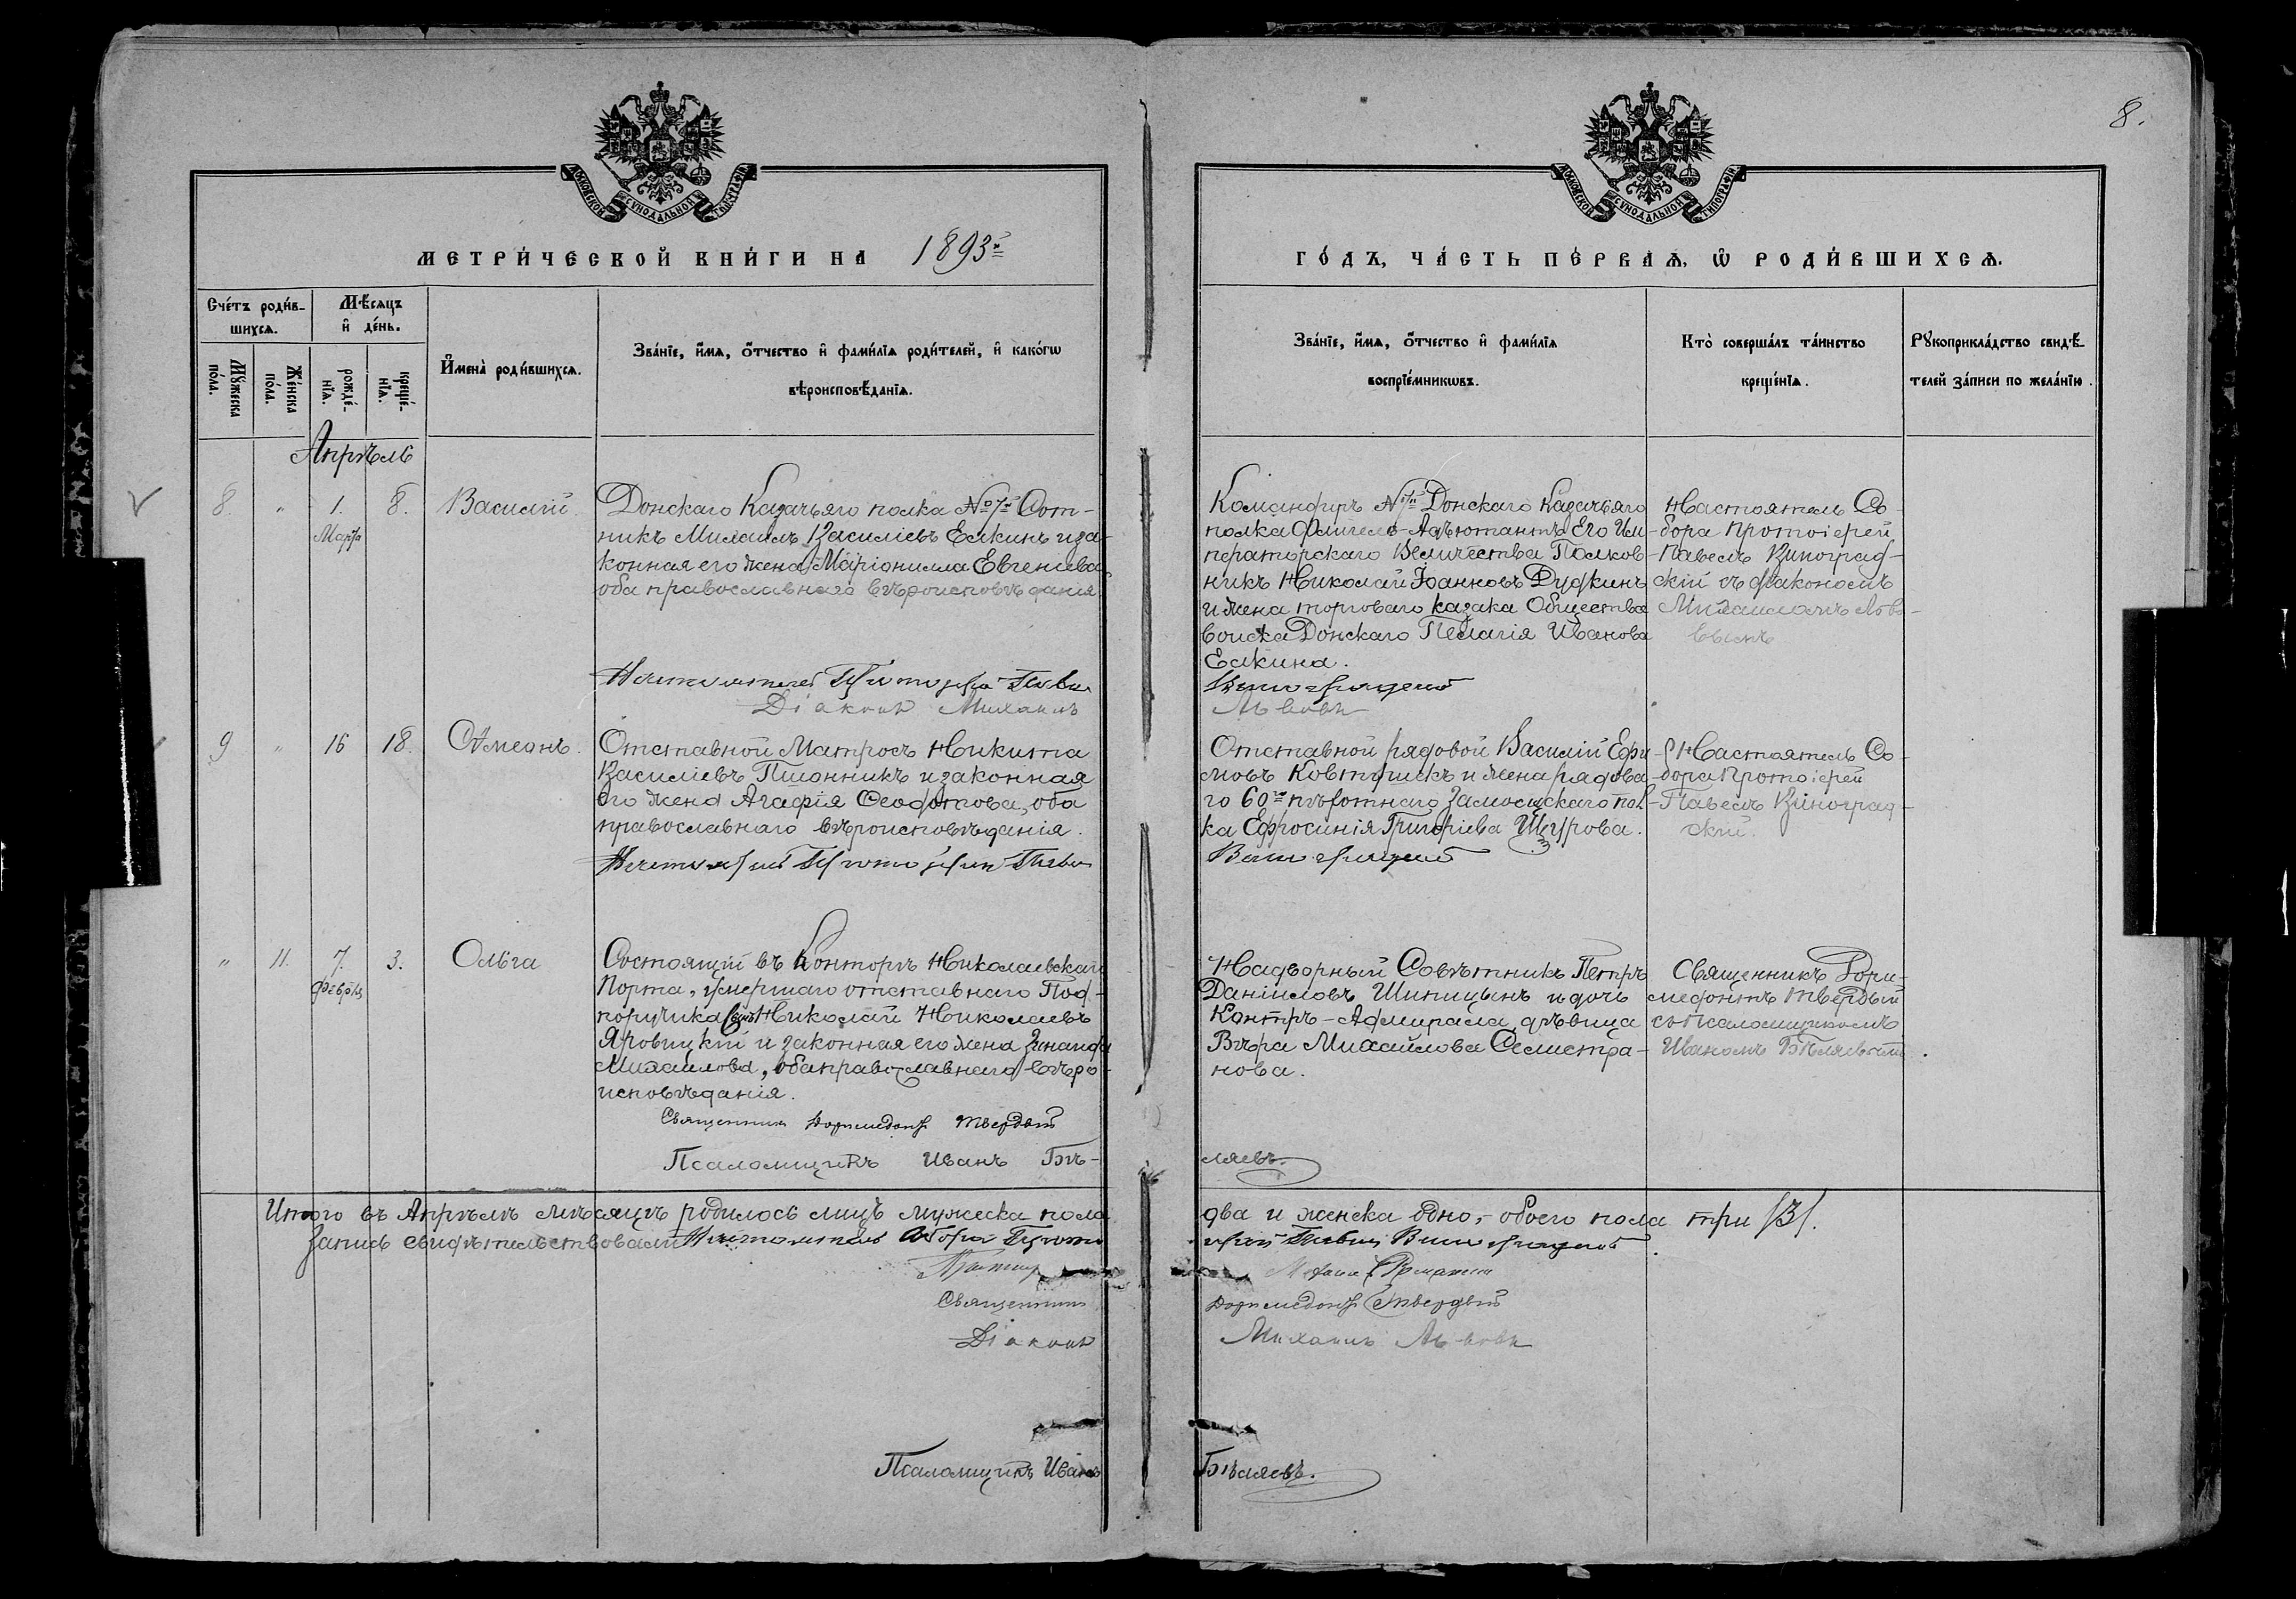 8.
МОСКОВСКОЙ СѴНОДАЛЬНОЙ ТИПОГРАФІИ
МОСКОВСКОЙ СѴНОДАЛЬНОЙ ТИПОГРАФІИ
МЕТРИ́ЧЕСКОЙ КНИ́ГИ НА 1893й
ГО́ДЪ, ЧА́СТЬ ПЕ́РВАѦ, Ѡ҆ РОДИ́ВШИХСѦ.
Сче́тъ роди́в-
шихсѧ.
Мѣ́сѧцъ
и҆ де́нь.
Мꙋ́жеска
по́ла.
Же́нска
по́ла.
рожде́-
нїѧ.
креще́-
нїѧ.
И҆мена̀ роди́вшихсѧ.
Зва́нїе, и҆́мѧ, ѻ҆́тчество и҆ фами́лїѧ роди́телей, и҆ како́гѡ
вѣроисповѣ́данїѧ.
Зва́нїе, и҆́мѧ, ѻ҆́тчество и҆ фами́лїѧ
воспрїе́мникѡвъ.
Кто̀ соверша́лъ та́инство
креще́нїѧ.
Рꙋкоприкла́дство свидѣ́-
телей за́писи по жела́нїю.
Апрѣль
8. " 1. Марта 8. Василій.
Донскаго Казачьяго полка № 7й Сот-
никъ Михаилъ Василіевъ Елкинъ и за-
конная его жена Маріонилла Евгеніева,
оба православнаго вѣроисповѣданія
Настоятель Протоіерей Павелъ
Діаконъ Михаилъ
Командиръ № 7й Донскаго Казачьяго
полка Флигель-Адъютантъ Его Им-
ператорскаго Величества Полков-
никъ Николай Іоанновъ Дудкинъ
и жена торговаго казака Общества
войска Донскаго Пелагія Иванова
Елкина.
Виноградскій
Львовъ
Настоятель Со-
бора Протоіерей
Павелъ Виноград-
скій съ діакономъ
Михаиломъ Льво-
вымъ
9 " 16 18. Сѵмеонъ.
Отставной Матросъ Никита
Василіевъ Пшонникъ и законная
его жена Агафія Феодотова, оба
православнаго вѣроисповѣданія.
Настоятель Протоіерей Павелъ
Отставной рядовой Василій Ефи-
мовъ Ковтунъ и жена рядова-
го 60го пѣхотнаго Замосцскаго пол-
ка Ефросинія Григоріева Щурова.
Виноградскій
Настоятель Со-
бора Протоіерей
Павелъ Виноград-
скій.
" 11. 7. Февраля 3. Ольга
Состоящій въ Конторѣ Николаевскаго
Порта, умершаго отставнаго Под-
поручика сынъ Николай Николаевъ
Яровицкій и законная его жена Зинаида
Михаилова, оба православнаго вѣро-
исповѣданія.
Священникъ Дормедонтъ Твердый
Псаломщикъ Иванъ Бѣ-
ляевъ.
Надворный Совѣтникъ Петръ
Даніиловъ Шипицынъ и дочь
Контръ-Адмирала, дѣвица
Вѣра Михайлова Селистра-
нова.
Священникъ Дори-
медонтъ Твердый
съ псаломщикомъ
Иваномъ Бѣляевымъ.
Итого въ Апрѣлѣ мѣсяцѣ родилось лицъ мужеска пола два и женска одно, - обоего пола три /3/.
Запись свидѣтельствовали: Настоятель Собора Протоіерей Павелъ Виноградскій.
Священникъ Дормедонтъ Твердый
Діаконъ Михаилъ Львовъ
Псаломщикъ Иванъ Бѣляевъ.